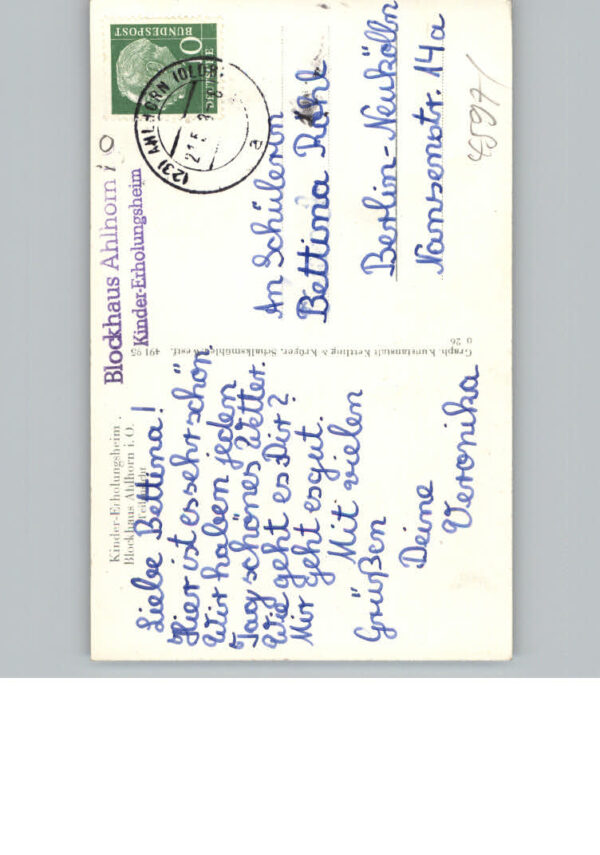 Kinder-Erholungsheim
Blockhaus Ahlhorn i. O.
Liebe Bettina!
Hier ist es sehr schön.
Wir haben jeden
Tag schönes Wetter.
Wie geht es Dir?
Mir geht es gut.
Mit vielen
Grüßen
Deine
Veronika
Graph. Kunstanstalt Kettling & Krüger, Schalksmühle/Westf. 491 95
o 26
Blockhaus Ahlhorn i O
Kinder-Erholungsheim
DEUTSCHE
BUNDESPOST
(23) AHLHORN (OLDB)
a
An Schülerin
Bettina Röhl
Berlin-Neukölln
Nansenstr. 14a